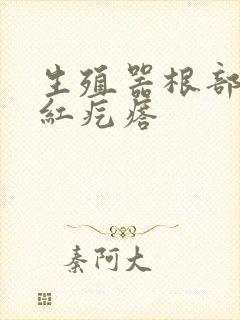 生殖器根部
红疙瘩
秦阿大